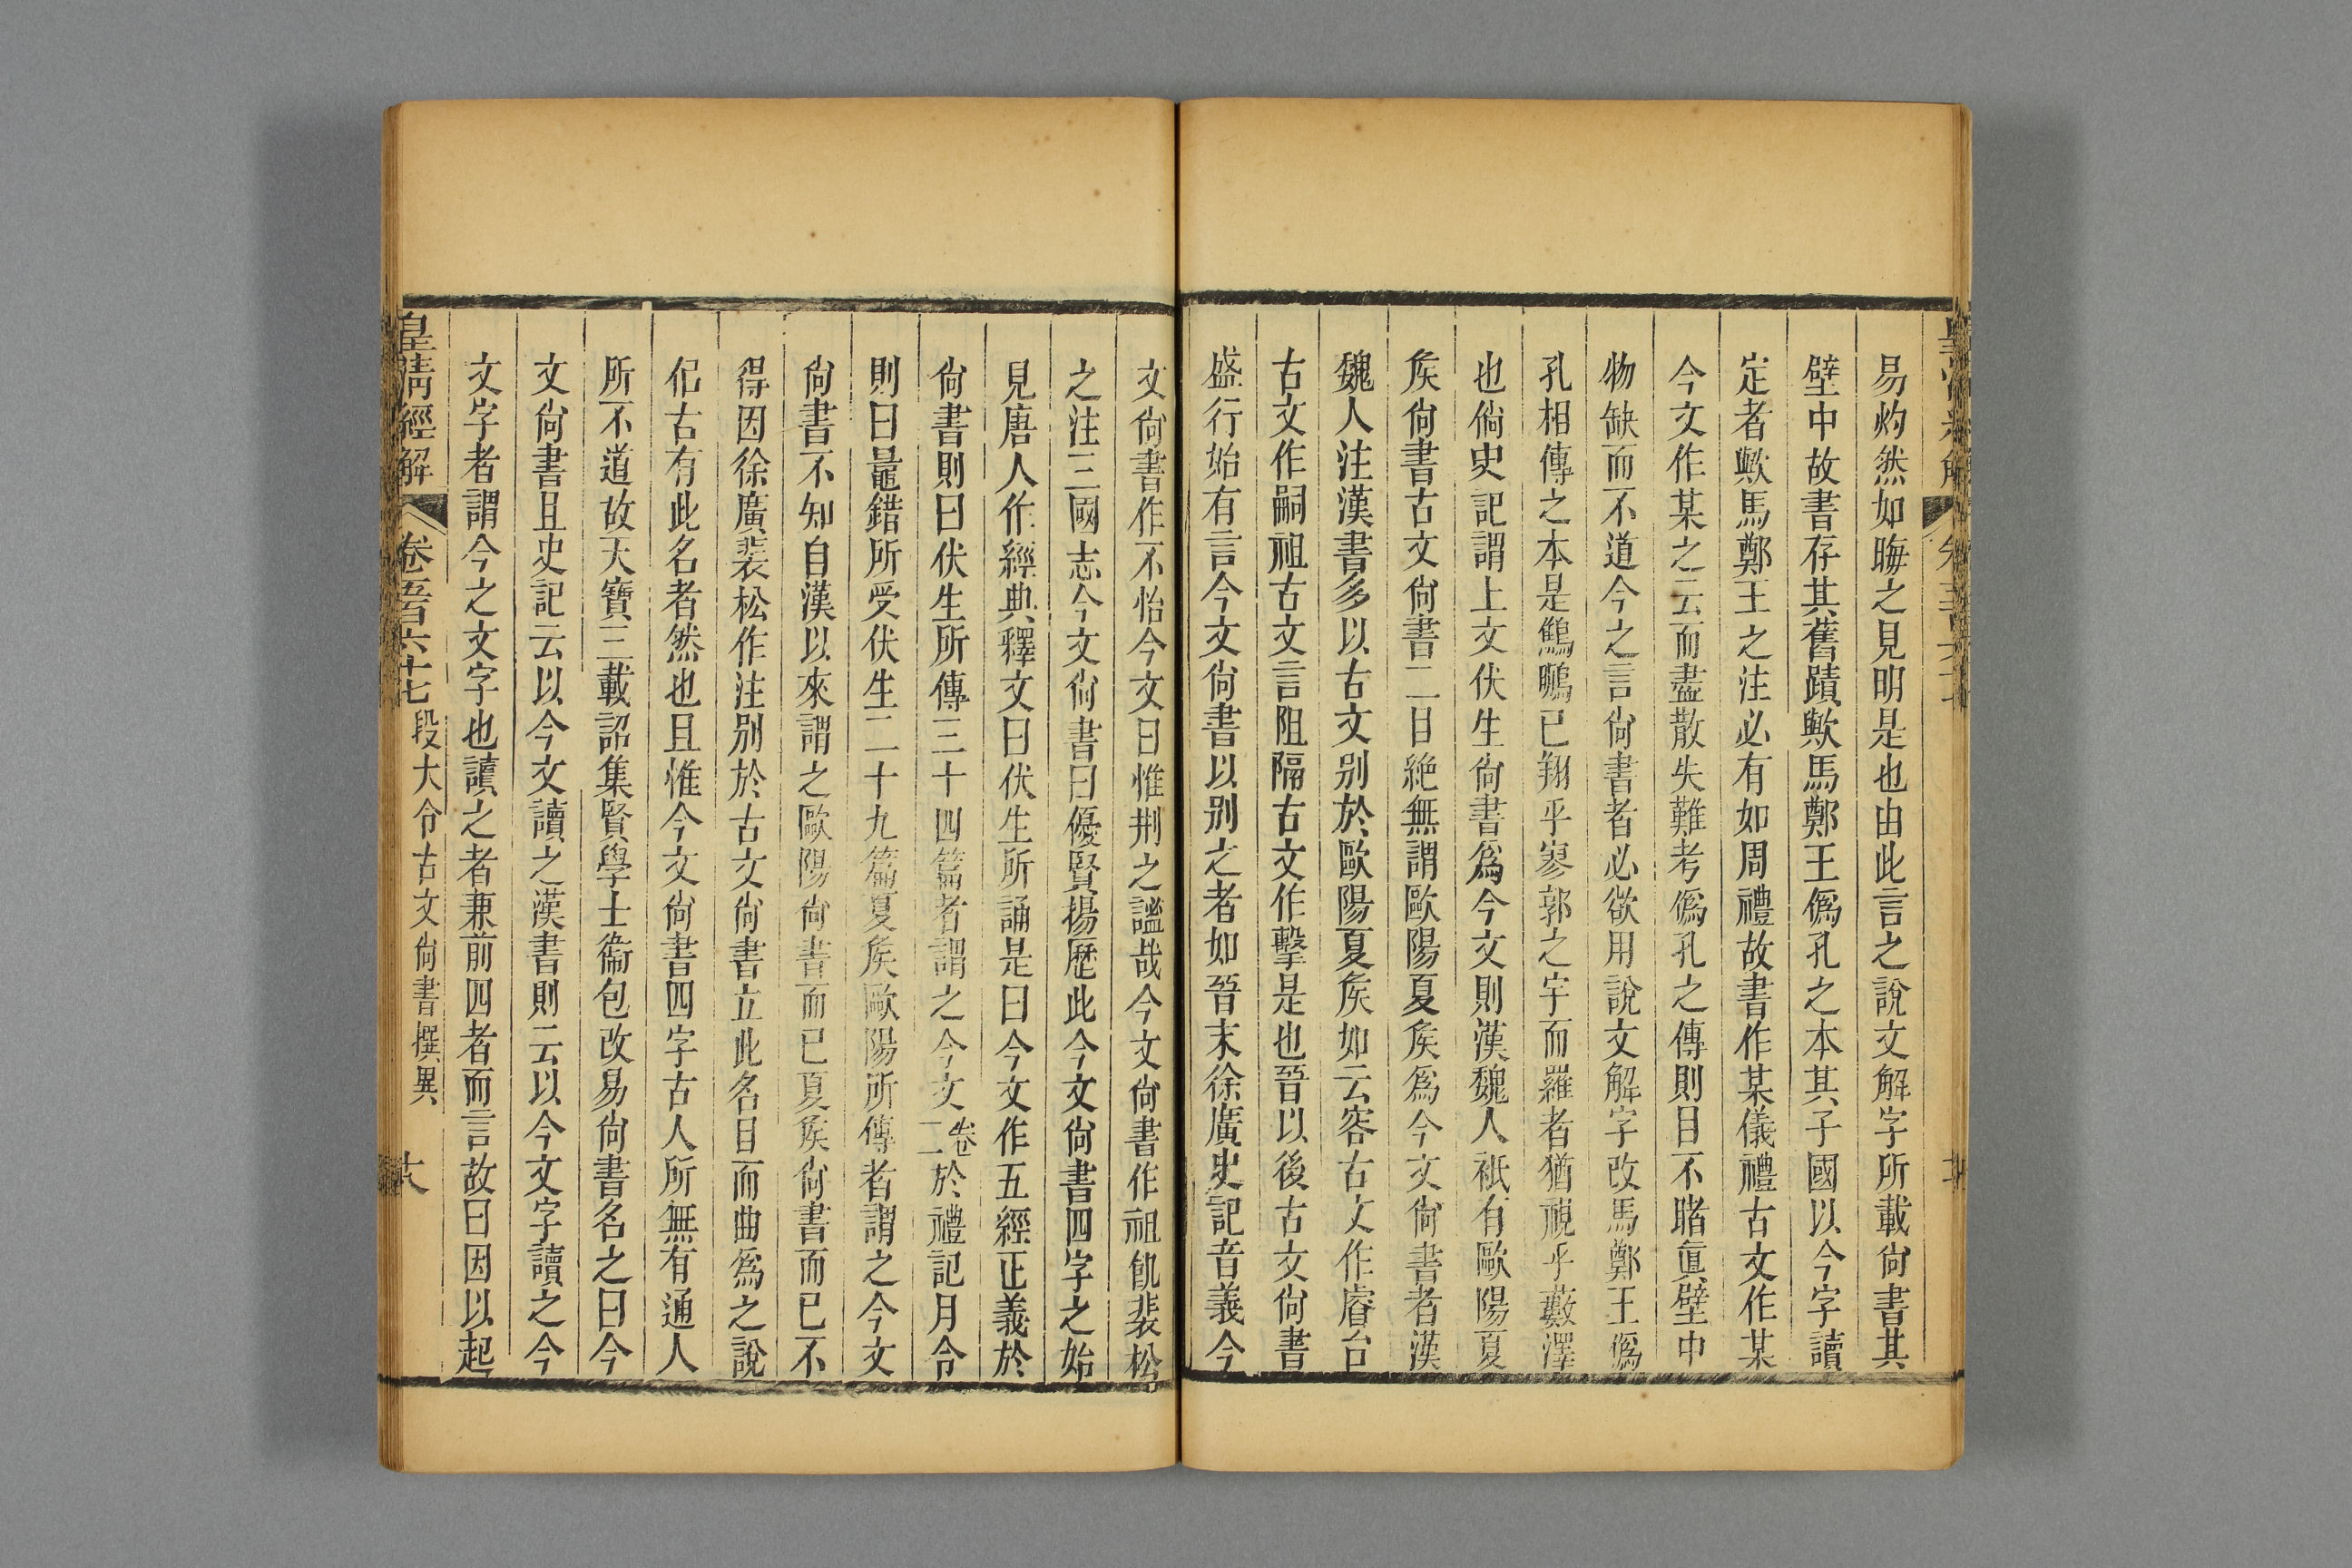 易灼然如晦之見明是也由此言之說文解字所載尙書其
壁中故書存其舊蹟歟馬鄭王僞孔之本其子國以今字讀
定者歟馬鄭王之注必有如周禮故書作某儀禮古文作某
今文作某之云而盡散失難考僞孔之傳則目不睹眞壁中
物缺而不道今之言尙書者必欲用說文解字改馬鄭王僞
孔相傳之本是鷦鵬已翔乎寥郭之宇而羅者猶視乎藪澤
也倘史記謂上文伏生尙書爲今文則漢魏人祇有歐陽夏
矦尙書古文尙書二目絶無謂歐陽夏矦爲今文尙書者漢
魏人注漢書多以古文别於歐陽夏矦如云容古文作睿台
古文作嗣祖古文言阻隔古文作擊是也晉以後古文尙書
盛行始有言今文尙書以别之者如晉末徐廣史記音義今
文尙書作不怡今文曰惟𠛬之謐哉今文尙書作祖飢裴松
之注三國志今文尙書曰優賢揚歷此今文尙書四字之始
見唐人作經典釋文曰伏生所誦是曰今文作五經正義於
尙書則曰伏生所傳三十四篇者謂之今文卷二於禮記月令
則曰鼂錯所受伏生二十九篇夏矦歐陽所傳者謂之今文
尙書不知自漢以來謂之歐陽尙書而已夏矦尙書而已不
得因徐廣裴松作注别於古文尙書立此名目而曲爲之說
侣古有此名者然也且惟今文尙書四字古人所無有通人
所不道故天寶三載詔集賢學士衞包改易尙書名之曰今
文尙書且史記云以今文讀之漢書則云以今文字讀之今
文字者謂今之文字也讀之者兼前四者而言故曰因以起
皇清經解
卷五百六十七
段大令古文尙書撰異